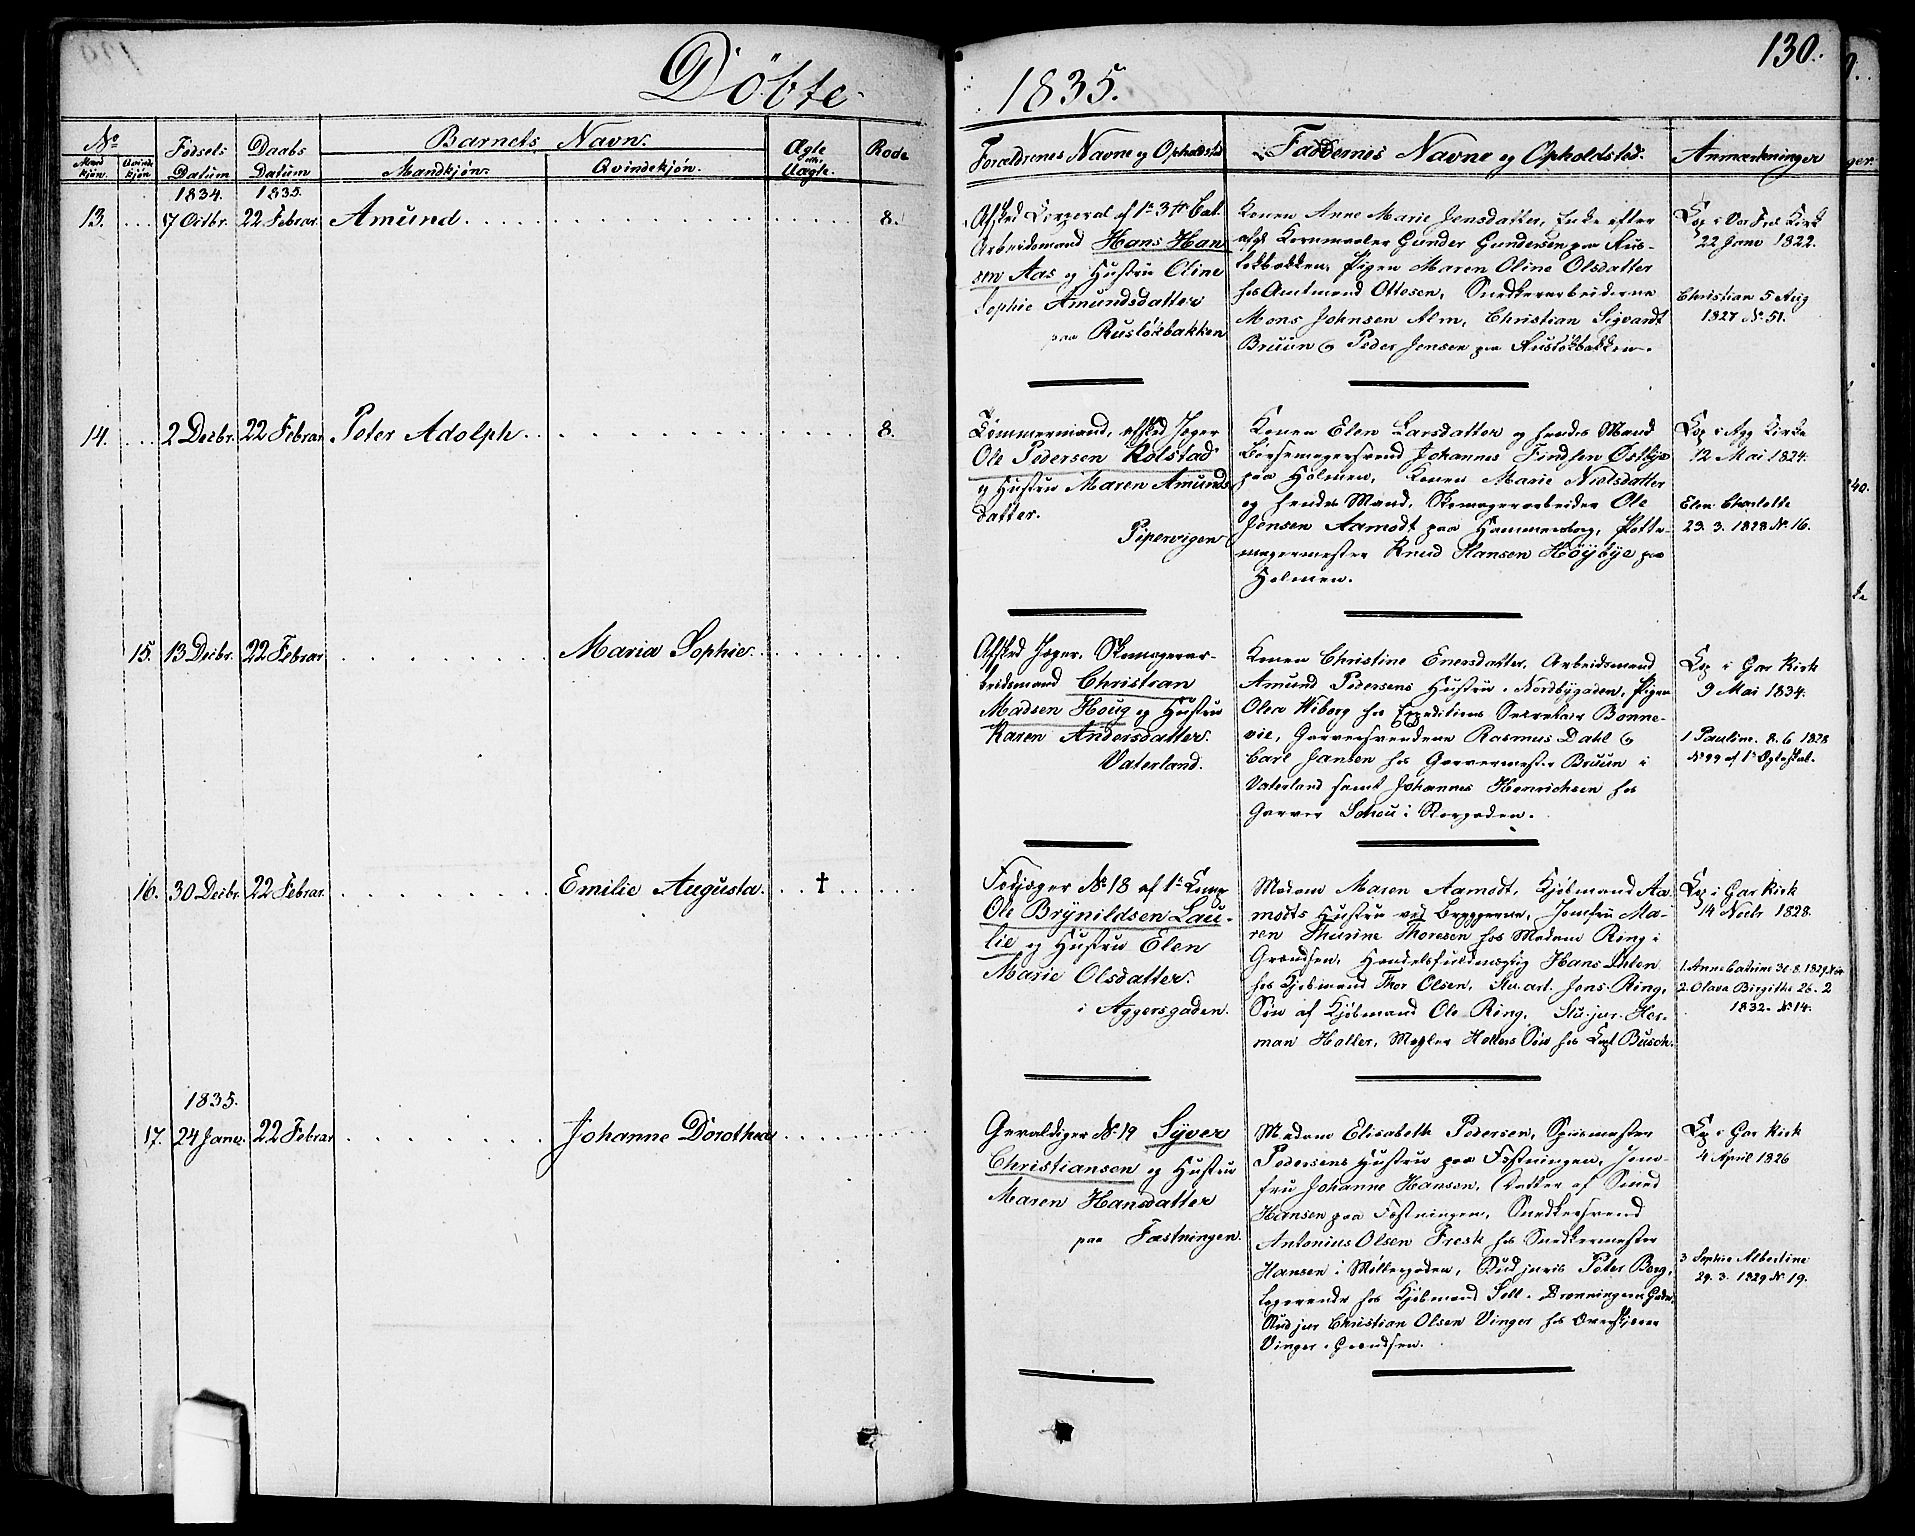 Döbte
1835.
130.
No
Mandkjön.
Qvindekjön
Fødsels Datum
Daabs Datum
Barnets Navn.
Mandkjön.
Qvindekjön.
Ægte eller Uægte.
Rode
Forældrenes Navne og Opholdsted
Faddernes Navne og Opholdsted.
Anmærkninger
1834.
1835.
13.
17 Octbr.
22 Februar.
Amund
8.
Afsked Corporal af 1te 3die Bat.
Arbeidsmand Hans Han
sen Aas og Hustru Oline
Sophie Amundsdatter
paa Rusløkbakken
Konen Anne Marie Jensdatter, Enke efter
afgl Kornmaaler Gunder Gundersen paa Rus-
løkbakken, Pigen Maren Oline Olsdatter
hos Amtmand Ottesen, Snedkerarbeiderne
Mons Johnsen Alm, Christian Sigvardt
Bruun og Peder Jensen paa Rusløkbakken.
Cop i Vor Frel Kirk
22 Janv 1822.
Christian 5 Aug
1827 No 51.
14.
2 Decbr.
22 Februar
Peter Adolph
8.
Tømmermand, afsked Jæger
Ole Pedersen Kolstad
og Hustru Maren Amunds
datter.
Pipervigen
Konen Elen Larsdatter og hendes Mand
Børsemagersvend Johannes Findsen Østbye
paa Holmen, Konen Marie Nielsdatter
og hendes Mand, Skomagerarbeider Ole
Jensen Aamodt paa Hammersborg, Potte-
magermester Knud Hansen Høybye paa
Holmen.
Cop i Agg Kirke
12 Mai 1824.
Elen Charlotte
23. 3. 1828 No 16.
15.
13 Decbr.
22 Februar
Maria Sophie
Afsked Jæger, Skomagerar-
beidsmand Christian
Madsen Houg og Hustru
Karen Andersdatter.
Vaterland.
Konen Christine Enersdatter, Arbeidsmand
Amund Pedersens Hustru i Nordbygaden, Pigen
Olea Wiborg hos Expeditions Secretair Bonne-
vie, Garversvendene Rasmus Dahl og
Carl Jansen hos Garvermester Bruun i
Vaterland samt Johannes Henrichsen hos
Garver Schou i Storgaden.
Cop i Gar Kirk
9 Mai 1834.
1 Pauline. 8. 6 1828
No 99 af 1te Ægteskab.
16.
30 Decbr.
22 Februar.
Emilie Augusta.
†
Fodjæger No 18 af 1te Comp
Ole Brynildsen Lau-
lie og Hustru Elen
Marie Olsdatter.
i Aggersgaden.
Madam Maren Aamodt, Kjøbmand Aa-
modts Hustru ved Bryggerne, Jomfru Ma-
ren Thurine Thoresen hos Madam Ring i
Grændsen, Handelsfuldmægtig Hans Ihlen
hos Kjøbmand Thor Olsen, Stu. art. Jens Ring,
Søn af Kjøbmand Ole Ring, Stu. jur. Her-
man Holter, Mægler Holters Søn hos Capt Busch.
Cop i Gar Kirk
14 Novbr 1828.
1. Anne Catrine 30. 8. 1829
2. Olava Birgithe 26. 2
1832. No 14.
1835.
17.
24 Janv.
22 Februar
Johanne Dorothea
Geraldiger No 19 Syver
Christiansen og Hustru
Maren Hansdatter
paa Fæstningen.
Madam Elisabeth Pedersen, Spiismester
Pedersens Hustru paa Fæstningen, Jom-
fru Johanne Hansen, Datter af Smed
Hansen paa Fæstningen, Snedkersvend
Antonius Olsen Fresk hos Snedkermester
Hansen i Møllergaden, Stud juris Peter Borg,
Logerende hos Kjøbmand Sell i Dronningens Gade,
Stud jur Christian Olsen Vinger hos Overskjærer
Vinger i Grændsen.
Cop i Gar Kirk
4 April 1826
3 Sophie Albertine
29. 3. 1829 No 19.